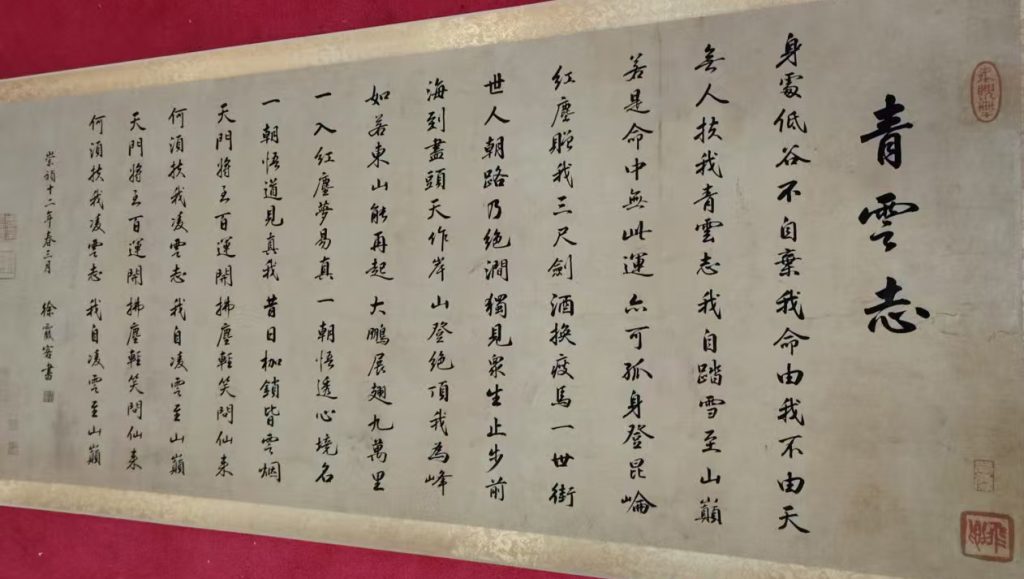 青雲志
身處低谷不自棄我命由我不由天
無人扶我青雲志我自踏雪至山巔
若是命中無此運亦可孤身登昆崙
紅塵贈我三尺劍酒換疲馬一世街
世人朝路乃絕澗獨見眾生止步前
海到盡頭天作岸山登絕頂我為峰
如若東山能再起大鵬展翅九萬里
一入紅塵夢易真一朝悟透心境名
一朝悟道見真我昔日枷鎖皆雲烟
天門將至百運開拂塵輕笑問仙來
何須扶我凌雲志我自凌雲至山巔
天門將至百運開拂塵輕笑問仙來
何須扶我凌雲志我自凌雲至山巔
崇禎十二年春三月 徐霞客書